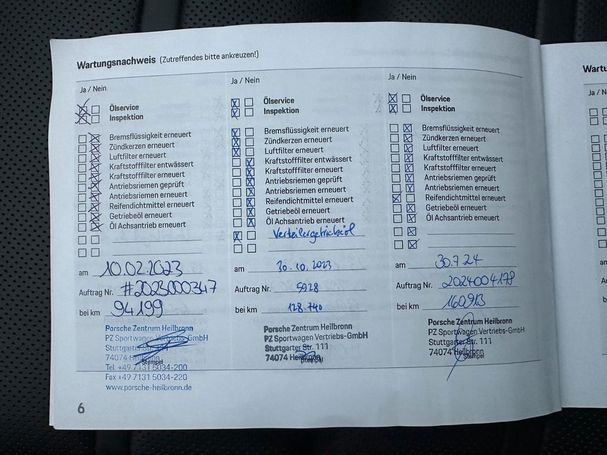 Wartungsnachweis (Zutreffendes bitte ankreuzen!)
Ja / Nein
Ölservice
Inspektion
Bremsflüssigkeit erneuert
Zündkerzen erneuert
Luftfilter erneuert
Kraftstofffilter entwässert
Kraftstofffilter erneuert
Antriebsriemen geprüft
Antriebsriemen erneuert
Reifendichtmittel erneuert
Getriebeöl erneuert
Öl Achsantrieb erneuert
am 10.02.2023
Auftrag Nr. #2023000347
bei km 94199
Porsche Zentrum Heilbronn
PZ Sportwagen Vertriebs-GmbH
Stuttgarter Str. 111
74074 Heilbronn
Stempel
Tel. +49 7131 5034-200
Fax +49 7131 5034-220
www.porsche-heilbronn.de
Ja / Nein
Ölservice
Inspektion
Bremsflüssigkeit erneuert
Zündkerzen erneuert
Luftfilter erneuert
Kraftstofffilter entwässert
Kraftstofffilter erneuert
Antriebsriemen geprüft
Antriebsriemen erneuert
Reifendichtmittel erneuert
Getriebeöl erneuert
Öl Achsantrieb erneuert
Verteilergetriebeöl
am 30.10.2023
Auftrag Nr. 5928
bei km 128.740
Porsche Zentrum Heilbronn
PZ Sportwagen Vertriebs-GmbH
Stuttgarter Str. 111
74074 Heilbronn
Ja / Nein
Ölservice
Inspektion
Bremsflüssigkeit erneuert
Zündkerzen erneuert
Luftfilter erneuert
Kraftstofffilter entwässert
Kraftstofffilter erneuert
Antriebsriemen geprüft
Antriebsriemen erneuert
Reifendichtmittel erneuert
Getriebeöl erneuert
Öl Achsantrieb erneuert
am 30.7.24
Auftrag Nr. 2024004178
bei km 160.913
Porsche Zentrum Heilbronn
PZ Sportwagen Vertriebs-GmbH
Stuttgarter Str. 111
74074 Heilbronn
Stempel
6
Ja / Nein